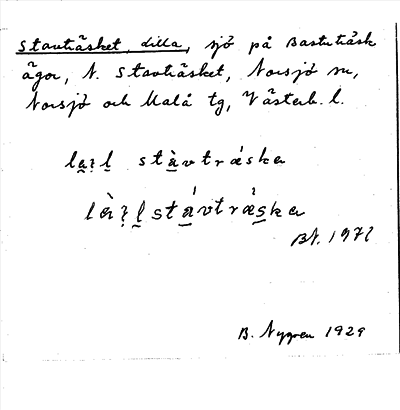 Stavträsket, Lilla, sjö på Bastuträsk
ägor, N. Stavträsket, Norsjö sn,
Norsjö och Malå tg, Västerb. l.
stàvtrǽska
stávtrǽska
BN. 1971
B. Nygren 1929